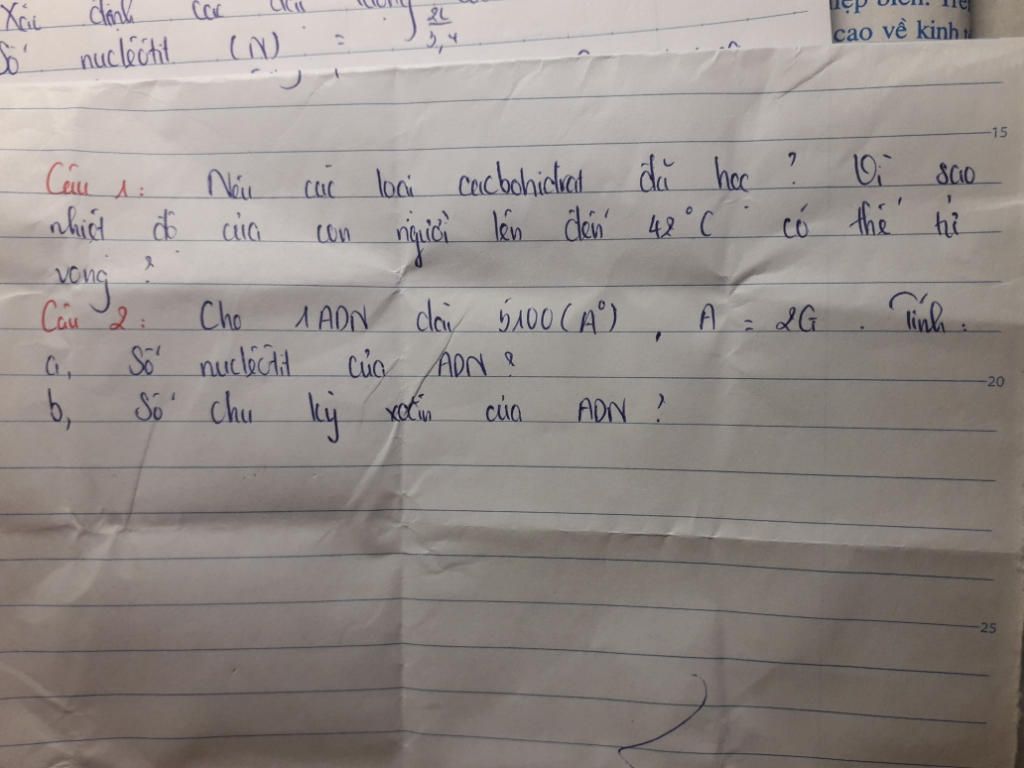 Xác định các
cao về kinh
Số nuclêôtit (N) = 2L/3,4
15
Câu 1: Nêu các loại cacbohidrat đã học? Vì sao
nhiệt độ của con người lên đến 42°C có thể tử
vong?
Câu 2: Cho 1 ADN dài 5100 (A°), A = 2G. Tính:
a, Số nuclêôtit của ADN?
20
b, Số chu kỳ xoắn của ADN?
25